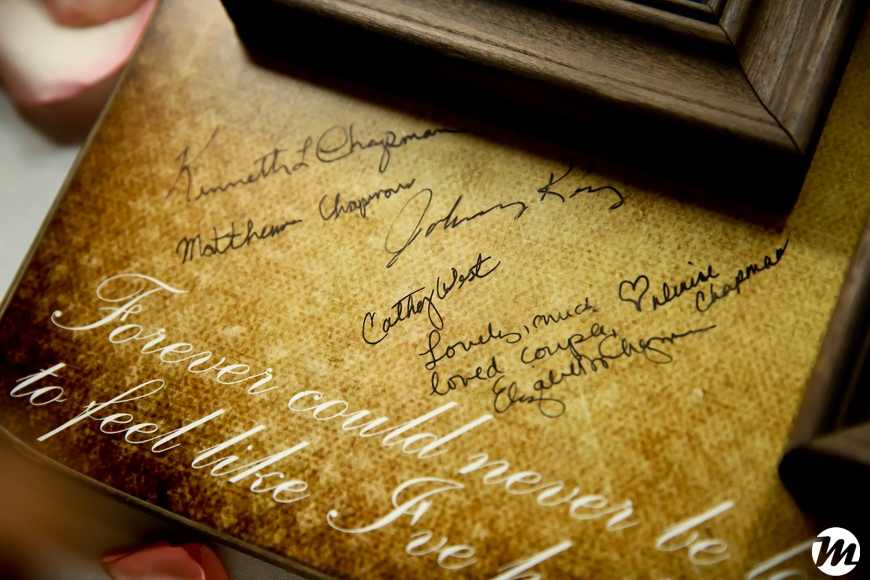 Kenneth L Chapman
Matthew Chapman
Johnny Key
Cathy West
Lovely, much
loved couple,
Elizabeth Chapman
♡ Denise
Chapman
Forever could never be
to feel like I've
M